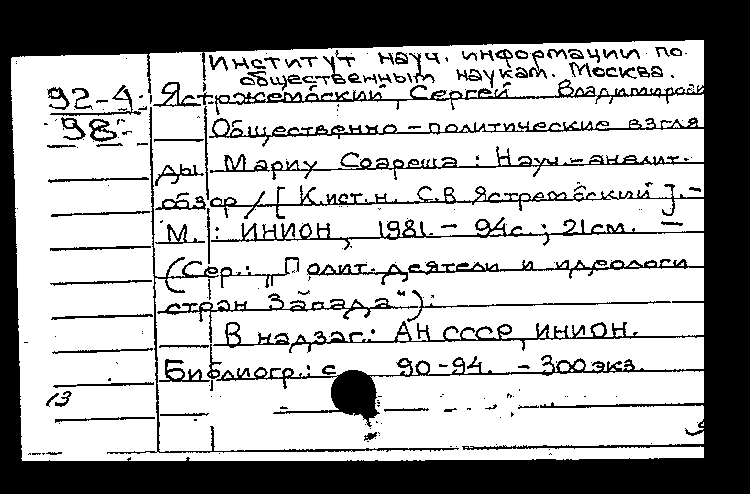 Институт науч. информации по
общественным наукам. Москва.
92-4: Ястржембский, Сергей Владимирови
98:- Общественно-политические взгля
ды Мариу Соареша : Науч.-аналит.
обзор / [ К.ист.н. С.В Ястрембский ]. -
М. : ИНИОН, 1981. - 94с. ; 21см. -
(Сер.: „Полит. деятели и идеологи
стран Запада“):
В надзаг.: АН СССР, ИНИОН.
Библиогр.: с 90-94. - 300экз.
13